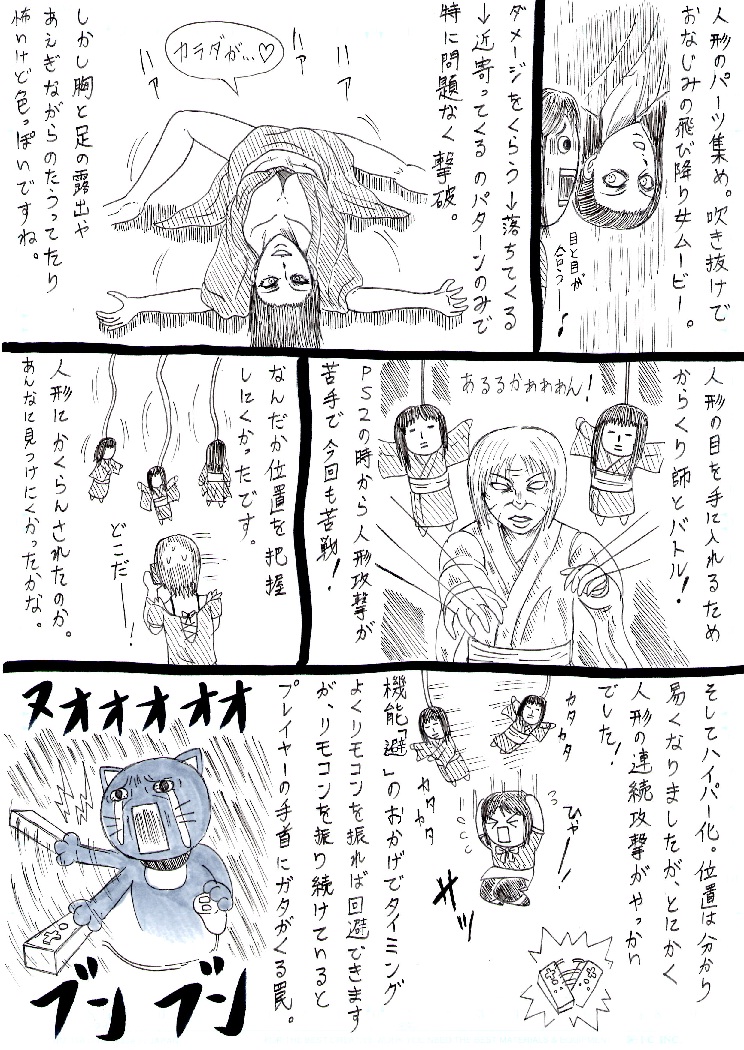 人形のパーツ集め。吹き抜けで
おなじみの飛び降り女ムービー。
目と目が
合うー！
ダメージをくらう→落ちてくる
→近寄ってくる のパターンのみで
特に問題なく撃破。
カラダが…♡
ハァ
ハァ
ハァ
しかし胸と足の露出や
あえぎながらのたうってたり
怖いけど色っぽいですね。
人形の目を手に入れるため
からくり師とバトル！
あるるかぁぁぁん！
PS2の時から人形攻撃が
苦手で今回も苦戦！
なんだか位置を把握
しにくかったです。
どこだーー！
人形にかくらんされたのか。
あんなに見つけにくかったかな。
そしてハイパー化。位置は分かり
易くなりましたが、とにかく
人形の連続攻撃がやっかい
でした！
カタカタ
カタカタ
ひゃーー！
サッ
機能「避」のおかげでタイミング
よくリモコンを振れば回避できます
が、リモコンを振り続けていると
プレイヤーの手首にガタがくる罠。
ヌオオオオオ
ブン ブン